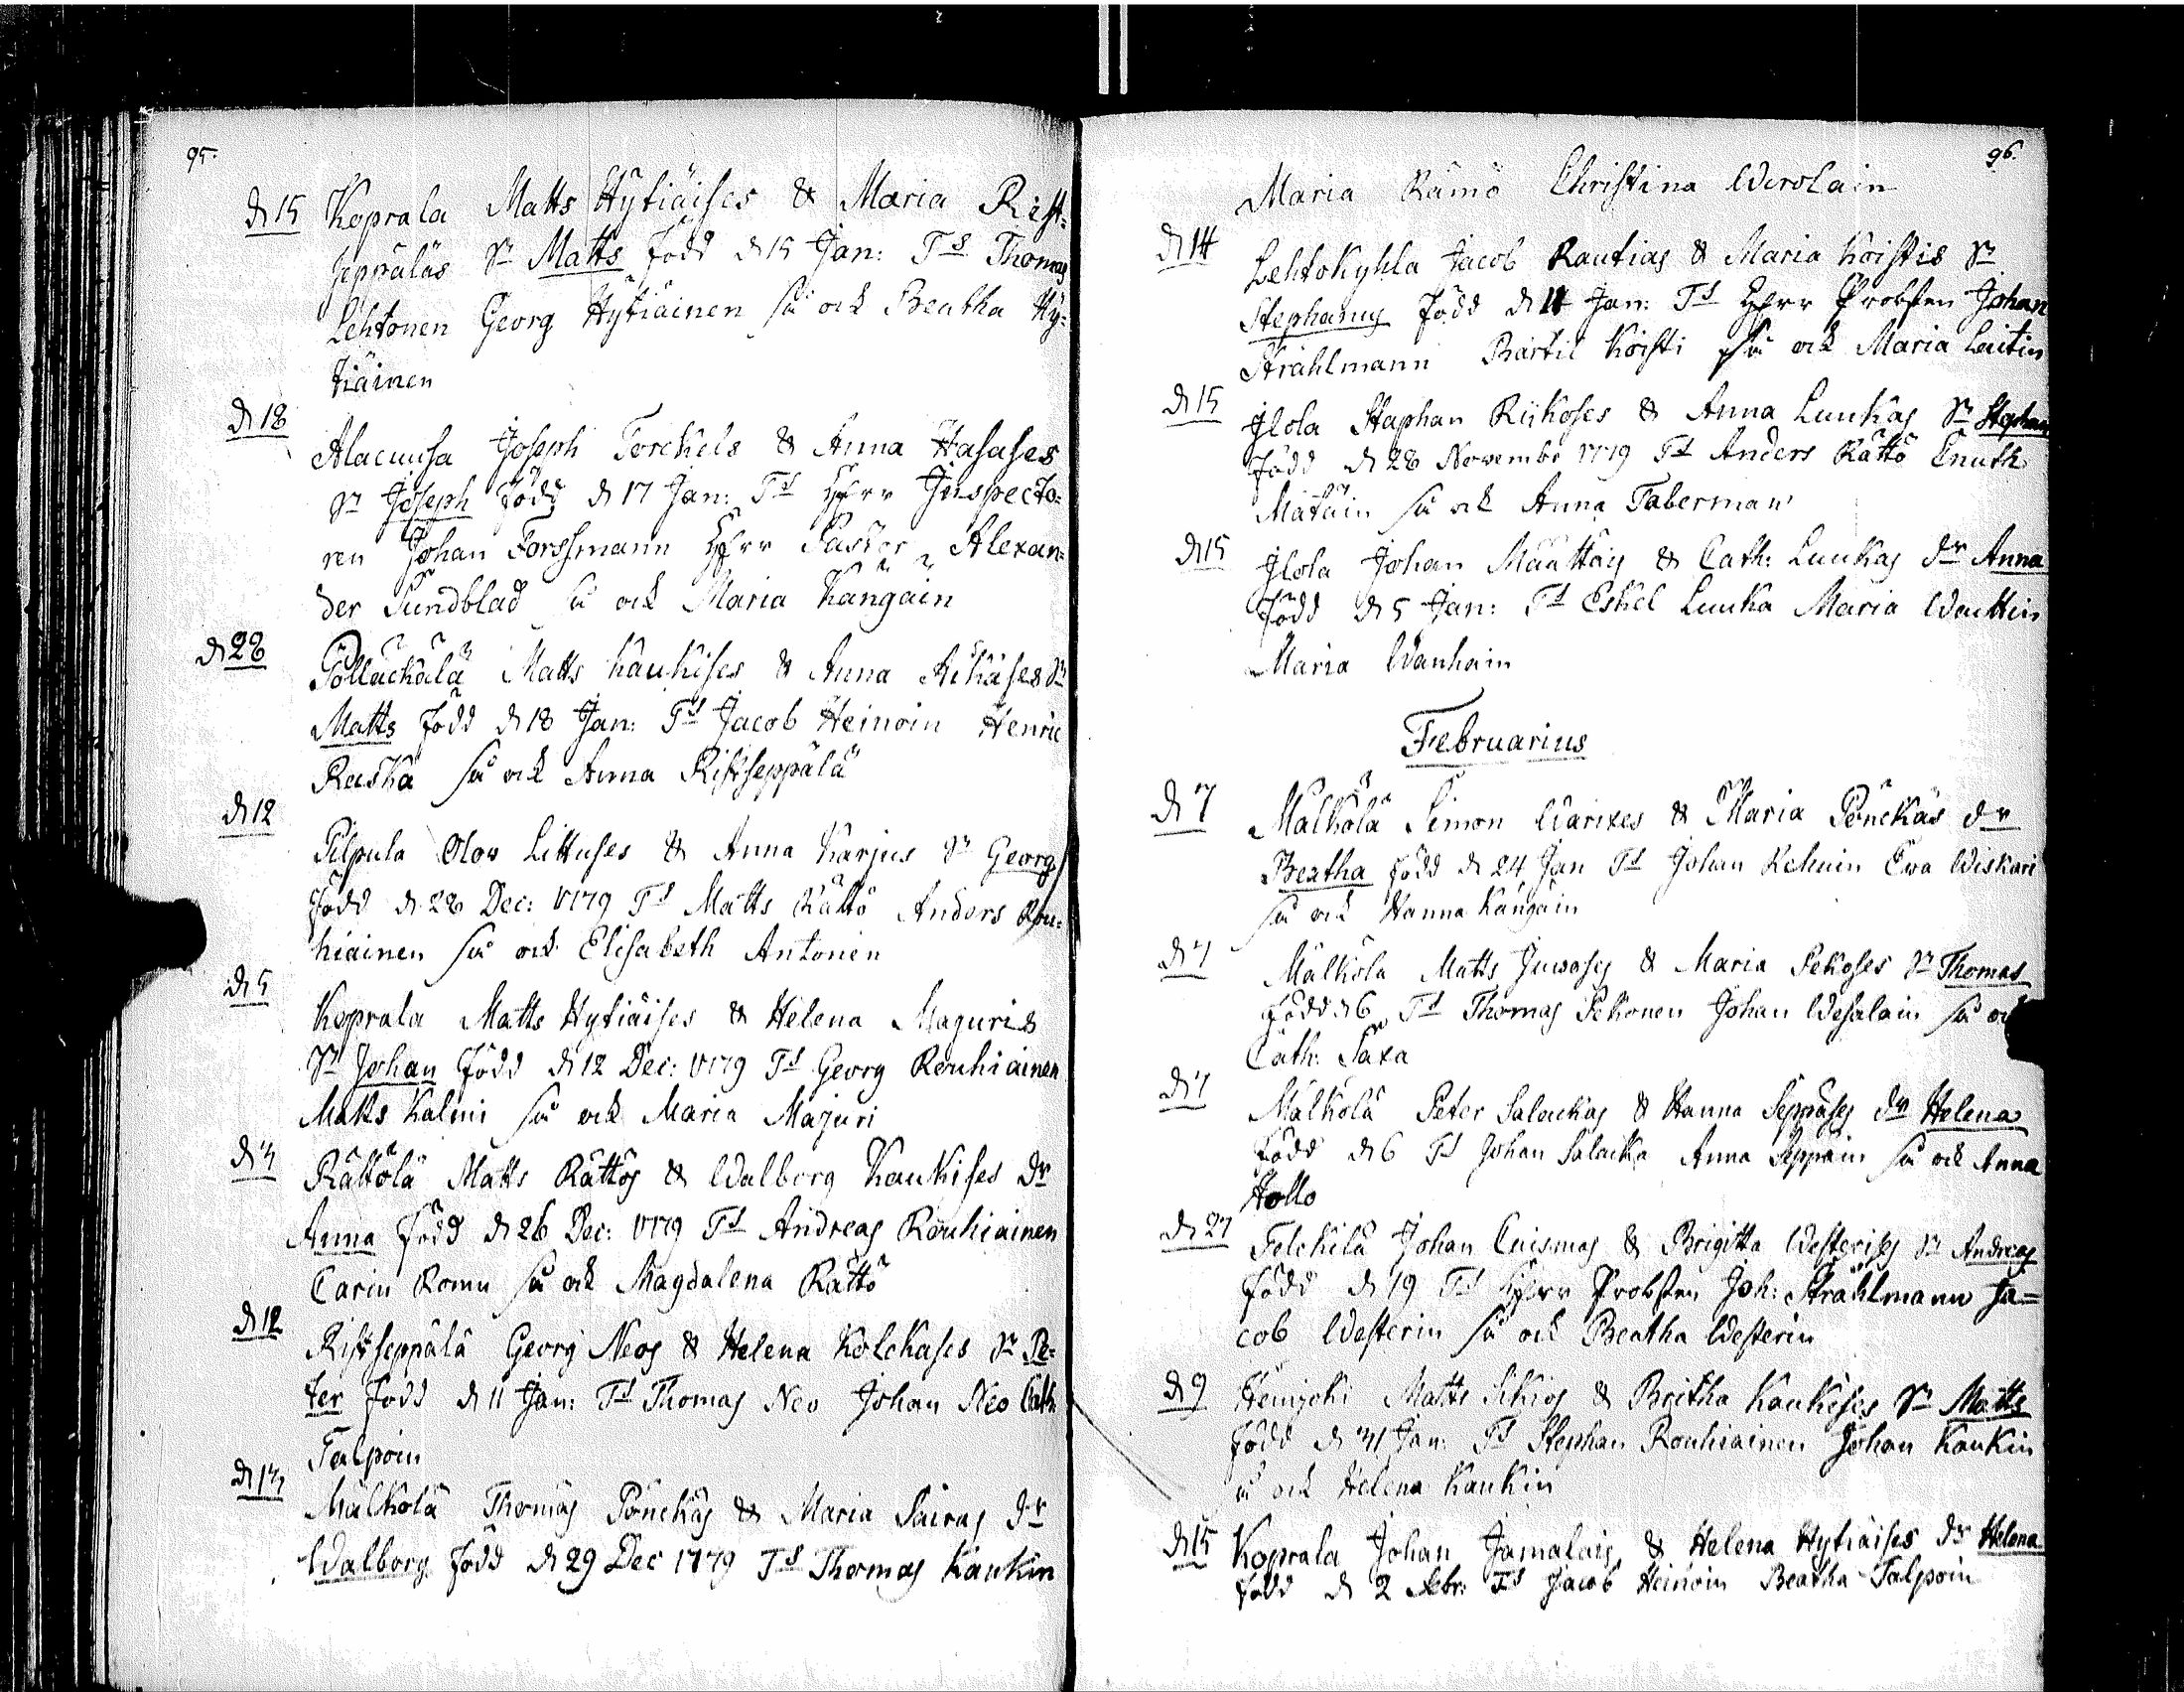 95.
d 15 Koprala Matts Hytiäises & Maria Rist-
seppäläs Sn Matts född d 15 Jan: Ts Thomas
Lehtonen Georg Hytiäinen så ock Beatha Hy-
tiäinen
d 18
Alacuusa Joseph Torckels & Anna Hasases
Sn Joseph född d 17 Jan: Ts Herr Inspecto-
ren Johan Forssmann Herr Pastor Alexan-
der Sundblad så ock Maria Kangain
d 28
Pölläckälä Matts Kaukises & Anna Ahkäses Sn
Matts född d 18 Jan: Ts Jacob Heinoin Henric
Ruska så ock Anna Ristseppälä
d 12
Pilpula Olov Littuses & Anna Karjus Sn Georg
född d 28 Dec: 1779 Ts Matts Rättö Anders Rou-
hiainen så ock Elisabeth Antonen
d 5
Koprala Matts Hytiäises & Helena Maguris
Sn Johan född d 12 Dec: 1779 Ts Georg Rouhiainen
Matts Kalmi så ock Maria Majuri
d 3
Rättölä Matts Rättös & Walborg Kaukises dr
Anna född d 26 Dec: 1779 Ts Andreas Rouhiainen
Carin Romu så ock Magdalena Rättö
d 12
Ristseppälä Georg Neos & Helena Kolckases Sn Pe-
ter född d 11 Jan: Ts Thomas Neo Johan Neo Cath
Talpoin
d 13
Mälkölä Thomas Pönckäs & Maria Sairas dr
Walborg född d 29 Dec 1779 Ts Thomas Kaukin
96.
Maria Rämö Christina Wirolain
d 14
Lehtokylä Jacob Rautias & Maria Koistis Sn
Stephanus född d 14 Jan: Ts Herr Probsten Johan
Strahlmann Bärtil Koisti så ock Maria Laitin
d 15
Ilola Staphan Riikoses & Anna Luukas Sn Stephan
född d 28 Novembr 1779 Ts Anders Rättö Cnuth
Mätäin så ock Anna Taberman
d 15
Ilola Johan Määttäis & Cath: Luukas dr Anna
född d 5 Jan: Ts Eskel Luuka Maria Wackin
Maria Wanhain
Februarius
d 7
Mälkölä Simon Warixes & Maria Pönckäs dr
Beatha född d 24 Jan Ts Johan Kekuin Ewa Wiskari
så ock Hanna Kangain
d 7
Mälköla Matts Juwases & Maria Pekoses Sn Thomas
född d 6 Ts Thomas Pekonen Johan Wesalain så ock
Cath: Saxa
d 7
Mälkölä Peter Salackas & Hanna Seppäses dr Helena
född d 6 Ts Johan Salacka Anna Seppäin så ock Anna
Hollo
d 27
Telckilä Johan Cuismas & Brigitta Westerises Sn Andreas
född d 19 Ts Herr Probsten Joh: Strählmann Ja-
cob Westerin så ock Beatha Westerin
d 9
Heinjoki Matts Sikiös & Britha Kaukises Sn Matts
född d 31 Jan: Ts Stephan Rouhiainen Johan Kaukin
så ock Helena Kaukin
d 15 Koprala Johan Jamalais & Helena Hytiäises dr Helena
född d 2 Febr: Ts Jacob Heinoin Beatha Talpoin